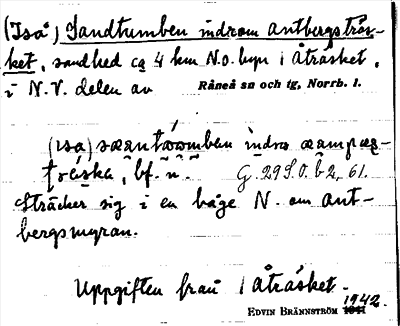 (Iså) Sandtumben indrom antbergsträs-
ket, sandhed ca 4 km N.O. byn i Åträsket,
i N.V. delen av Råneå sn och tg, Norrb. l.
bf. n.
G. 29 S.O. b 2, 61.
Sträcker sig i en båge N. om ant-
bergsmyran.
Uppgiften från i Åträsket.
1942.
EDVIN BRÄNNSTRÖM 1941